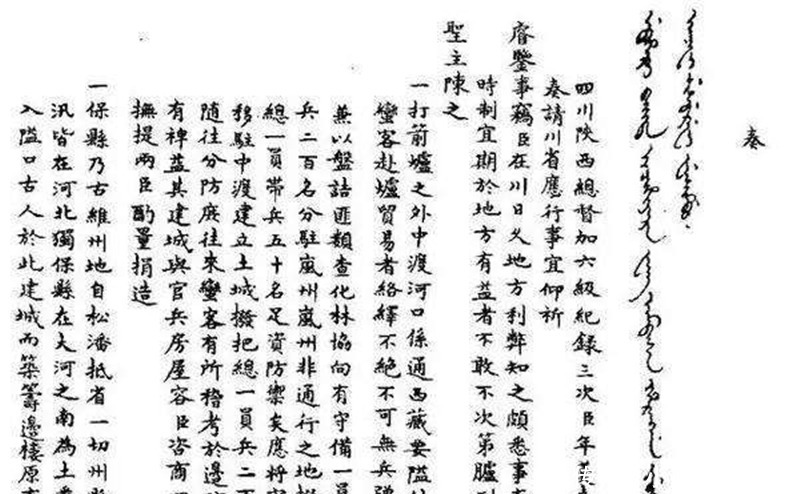 奏
四川陝西總督加六級紀錄三次臣年
奏請川省應行事宜仰祈
睿鑒事竊臣在川日久地方利弊知之頗悉事
時制宜期於地方有益者不敢不次第臚
聖主陳之
一打箭爐之外中渡河口係通西藏要隘
蠻客赴爐貿易者絡繹不絕不可無兵
兼以盤詰匪類查化林協向有守備一員
兵二百名分駐嵐州嵐州非通行之地
總一員帶兵五十名足資防禦矣應將
移駐中渡建立土城撥把總一員兵二
隨往分防庶往來蠻客有所稽考於邊
有裨益其建城與官兵房屋容臣咨商
撫提兩臣酌量捐造
一保縣乃古維州地自松潘抵省一切州
汛皆在河北獨保縣在大河之南為土
入隘口古人於此建城而築籌邊樓原